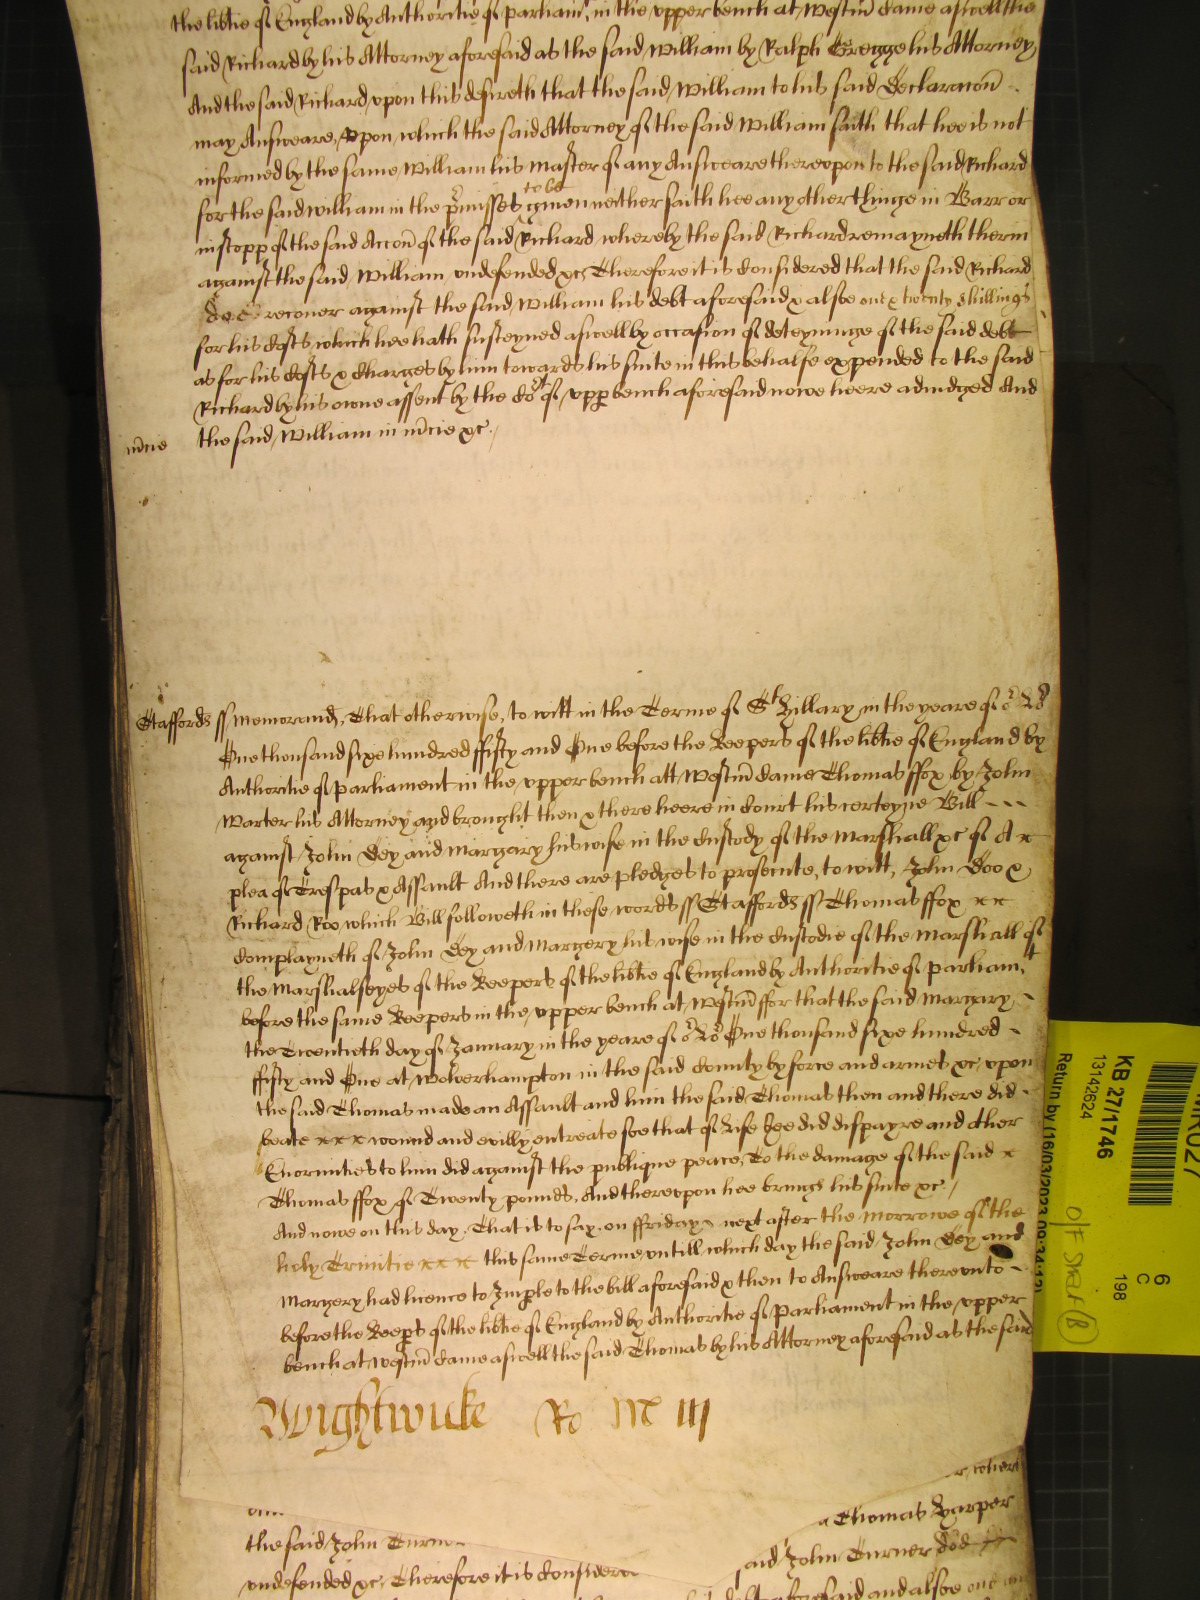 the lib̃tie of England by Authoritie of parliamt, in the vpper bench at Westm̃ Came aswell the
said Richard by his Attorney aforesaid as the said William by Ralph Gregge his Attorney
And the said Richard vpon this desireth that the said William to his said Declaracon̄
may Answeare, Vpon which the said Attorney of the said William saith that hee is not
informed by the same William his Master of any Answeare therevpon to the said Richard
for the said William in the p̃misses to be gyuen neither saith hee any other thinge in Barr or
in stopp of the said Accon̄ of the said Richard whereby the said Richard remayneth therin
against the said William vndefended &c, Therefore it is Considered that the said Richard
doe recouer against the said William his debt aforesaid & alsoe one & twenty shillings
for his Costs which hee hath susteyned aswell by occasion of deteyninge of the said debt
as for his Costs & Charges by him towards his suite in this behalfe expended to the said
Richard by his owne assent by the Cort of vpp̱ bench aforesaid nowe heere adiudged And
the said William in m̃cie &c.
m̃cie
Staffords ss Memorand, That otherwise, to witt in the Terme of St Hillary in the yeare of or Lord
One thousand sixe hundred ffifty and One before the Keepers of the lib̃tie of England by
Authoritie of parliament in the vpper bench att Westm̃ Came Thomas ffox by John
Warter his Attorney and brought then & there heere in Court his certeyne Bill
against John Dey and Margary his wife in the Custody of the Marshall &c of A
plea of Trespas & Assault And there are pledges to prosecute, to witt, John Doo &
Richard Roo which Bill followeth in these words ss Staffords ss Thomas ffox
Complayneth of John Dey and Margery his wife in the Custodie of the Marshall of
the Marshalseyes of the Keepers of the lib̃tie of England by Authoritie of parliamt
before the same Keepers in the vpper bench at Westm̃ ffor that the said Margary
the Twentieth day of January in the yeare of or Lord One thousand sixe hundred
ffifty and One at Wolverhampton in the said County by force and armes &c, vpon
the said Thomas made an Assault and him the said Thomas then and there did
beate wound and euilly entreate soe that of life hee did dispayre and other
Enormities to him did against the publique peace, To the damage of the said
Thomas ffox of Twenty pounds, And therevpon hee brings his suite &c.
And nowe on this day, That is to say, on ffriday next after the Morrowe of the
holy Trinitie this same Terme vntill which day the said John Dey and
Margery had licence to Imp̱le to the bill aforesaid & then to Answeare therevnto
before the Keep̱s of the lib̃tie of England by Authoritie of Parliament in the vpper
bench at Westm̃ Came aswell the said Thomas by his Attorney aforesaid as the said
Wightwicke Ro
r, wher
Thomas Harper
the said John Turn
aid John Turner
vndefended &c, Therefore it is Considere
aforesaid and alsoe one
KB 27/1746
13142624
Return by (16/03/2023
6
C
198